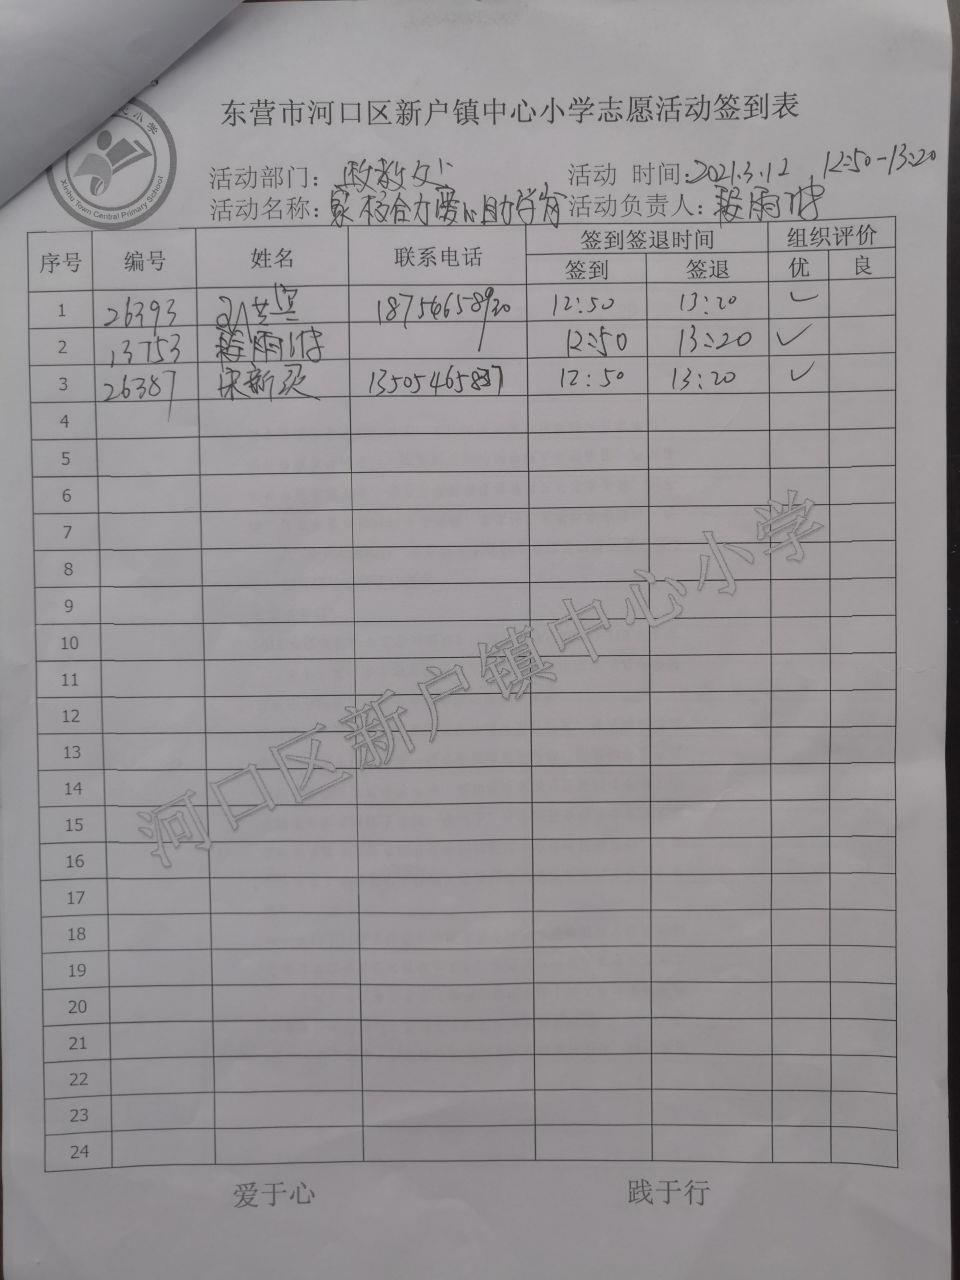 小学
Xinhu Town Central Primary School
东营市河口区新户镇中心小学志愿活动签到表
活动部门: 政教处
活动 时间: 2021.3.12 12:50-13:20
活动名称: 家校合力爱心助学育
活动负责人: 雨
序号 编号 姓名 联系电话 签到签退时间 组织评价
签到 签退 优 良
1 26393 18754658920 12:50 13:20 ✓
2 13753 雨 12:50 13:20 ✓
3 26387 新 13505465837 12:50 13:20 ✓
4
5
6
7
8
9
10
11
12
13
14
15
16
17
18
19
20
21
22
23
24
河口区新户镇中心小学
爱于心 践于行